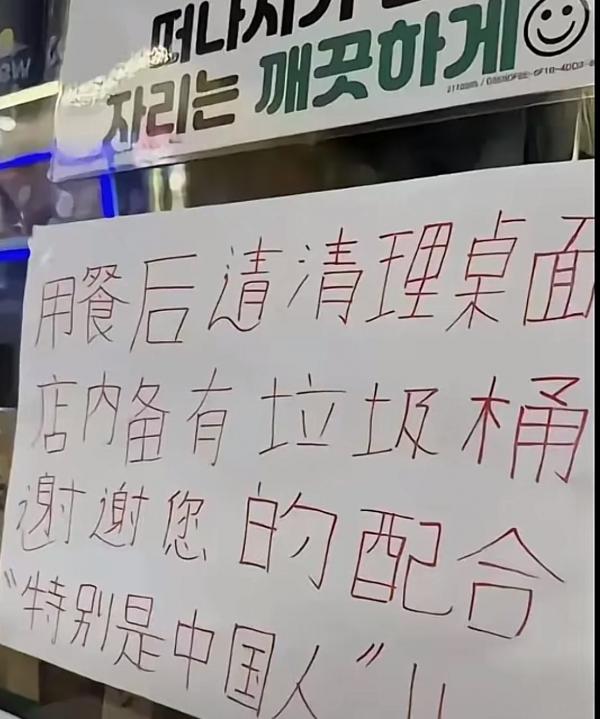 떠나시기
자리는 깨끗하게
用餐后请清理桌面
店内备有垃圾桶
谢谢您的配合
“特别是中国人”!!